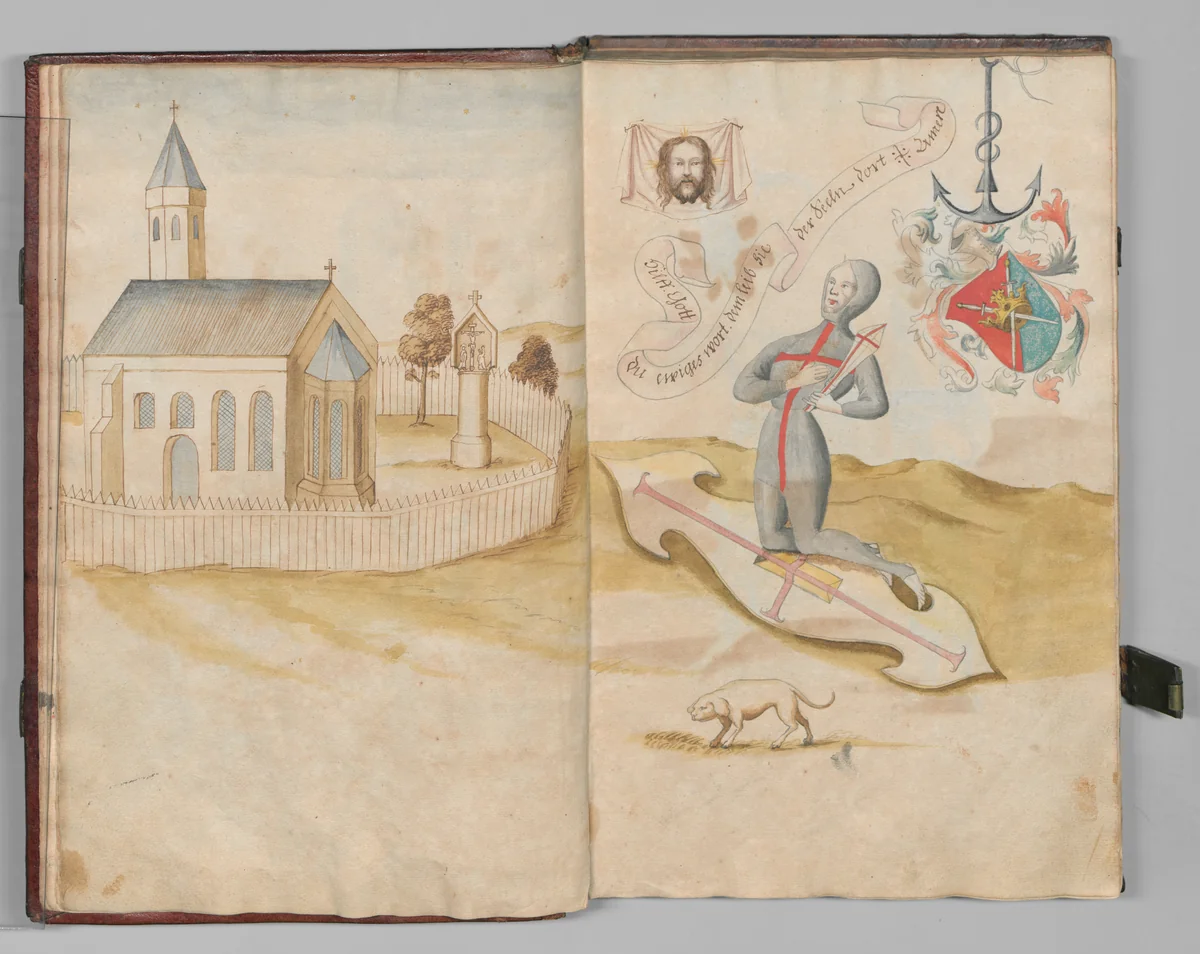 Hilff Gott
du ewiges wort. dem leib hie
der Seeln dort Amen